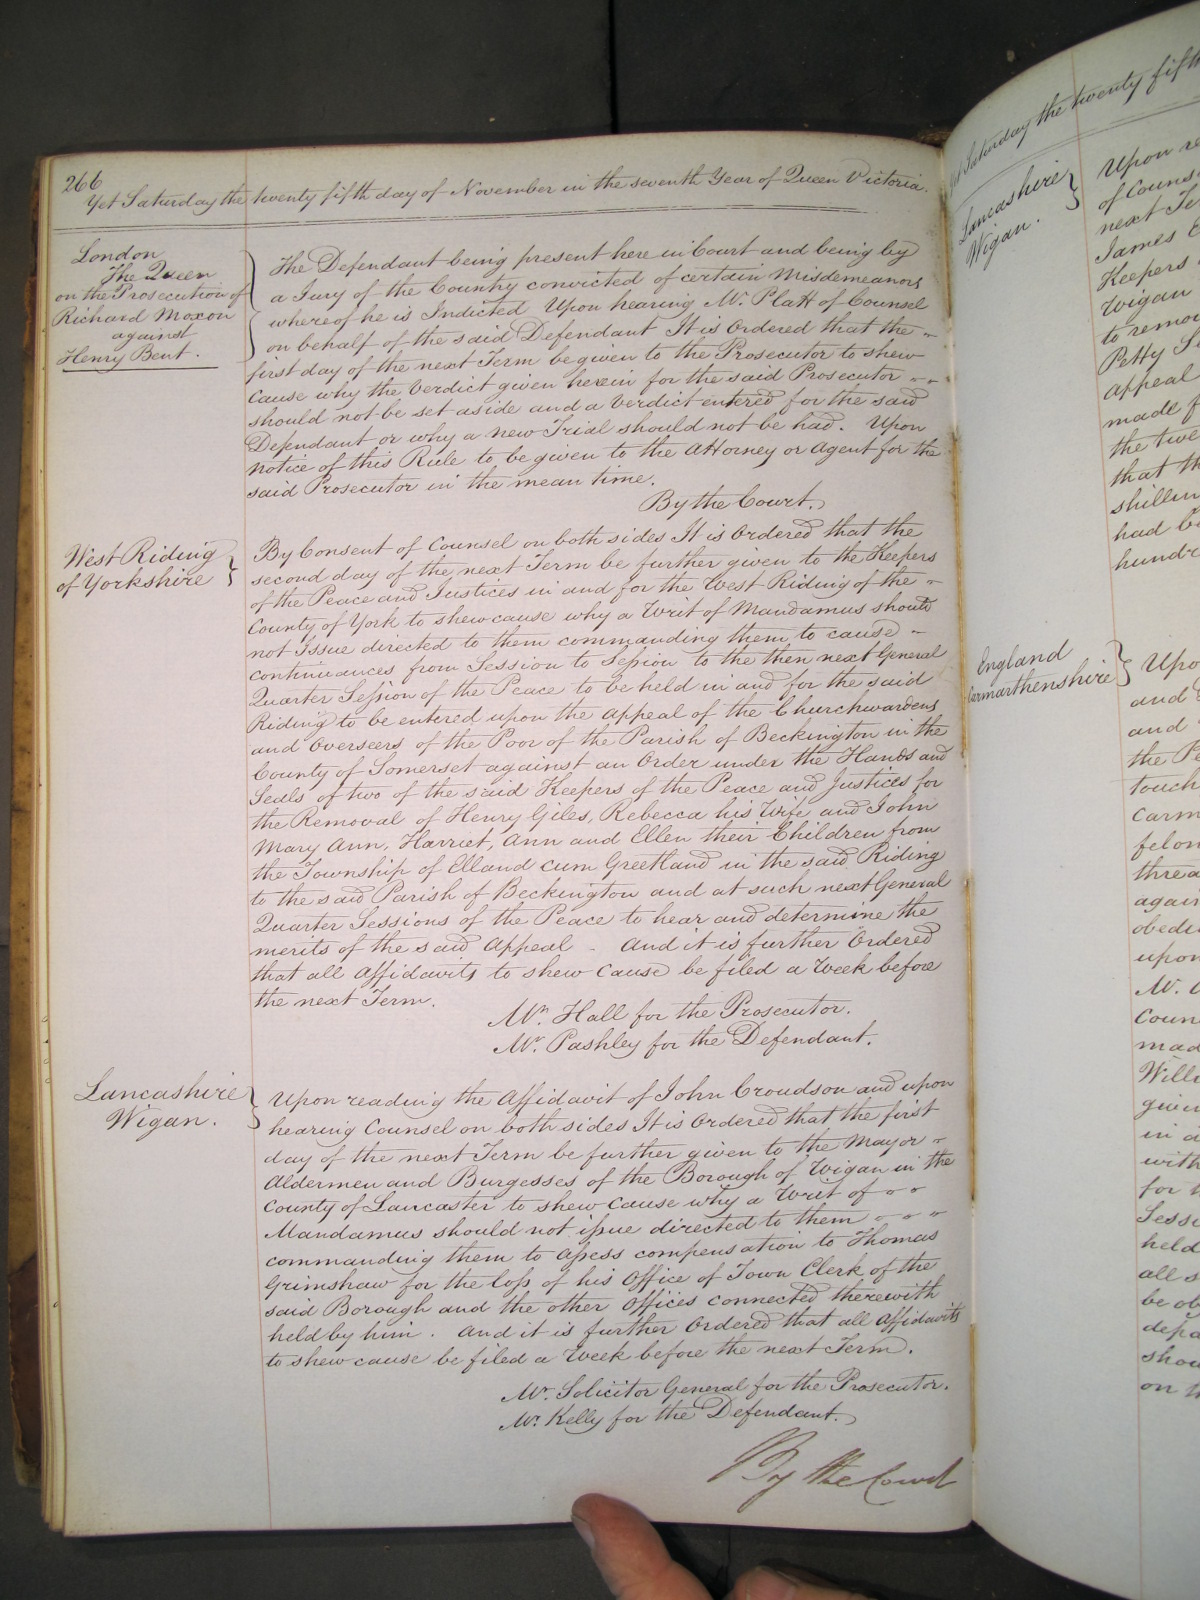 266
Yet Saturday the twenty fifth day of November in the seventh Year of Queen Victoria.
London
The Queen
on the Prosecution of
Richard Moxon
against
Henry Bent.
The Defendant being present here in Court and being by
a Jury of the Country convicted of certain Misdemeanors
whereof he is Indicted Upon hearing Mr. Platt of Counsel
on behalf of the said Defendant It is Ordered that the
first day of the next Term be given to the Prosecutor to shew
cause why the Verdict given herein for the said Prosecutor
should not be set aside and a Verdict entered for the said
Defendant or why a new Trial should not be had. Upon
notice of this Rule to be given to the Attorney or Agent for the
said Prosecutor in the mean time.
By the Court.
West Riding
of Yorkshire
By Consent of Counsel on both sides It is Ordered that the
second day of the next Term be further given to the Keepers
of the Peace and Justices in and for the West Riding of the
County of York to shew cause why a Writ of Mandamus should
not Issue directed to them commanding them to cause
continuances from Session to Session to the then next General
Quarter Session of the Peace to be held in and for the said
Riding to be entered upon the Appeal of the Churchwardens
and Overseers of the Poor of the Parish of Beckington in the
County of Somerset against an Order under the Hands and
Seals of two of the said Keepers of the Peace and Justices for
the Removal of Henry Giles, Rebecca his Wife and John
Mary Ann, Harriet, Ann and Ellen their Children from
the Township of Elland cum Greetland in the said Riding
to the said Parish of Beckington and at such next General
Quarter Sessions of the Peace to hear and determine the
merits of the said Appeal - And it is further Ordered
that all Affidavits to shew cause be filed a Week before
the next Term.
Mr. Hall for the Prosecutor.
Mr. Pashley for the Defendant.
Lancashire
Wigan.
Upon reading the Affidavit of John Croudson and upon
hearing Counsel on both sides It is Ordered that the first
day of the next Term be further given to the Mayor
Aldermen and Burgesses of the Borough of Wigan in the
County of Lancaster to shew cause why a Writ of
Mandamus should not issue directed to them
commanding them to assess compensation to Thomas
Grimshaw for the loss of his Office of Town Clerk of the
said Borough and the other Offices connected therewith
held by him. And it is further Ordered that all Affidavits
to shew cause be filed a Week before the next Term.
Mr. Solicitor General for the Prosecutor.
Mr. Kelly for the Defendant.
By the Court
Saturday the twenty fifth
Lancashire
Wigan.
Upon
of Counsel
next
James
Keepers
Wigan
to
Petty
Appeal
made
the
that
had
England
Carmarthenshire
and
and
the
obed
upon
made
given
in
with
for
held
all
on